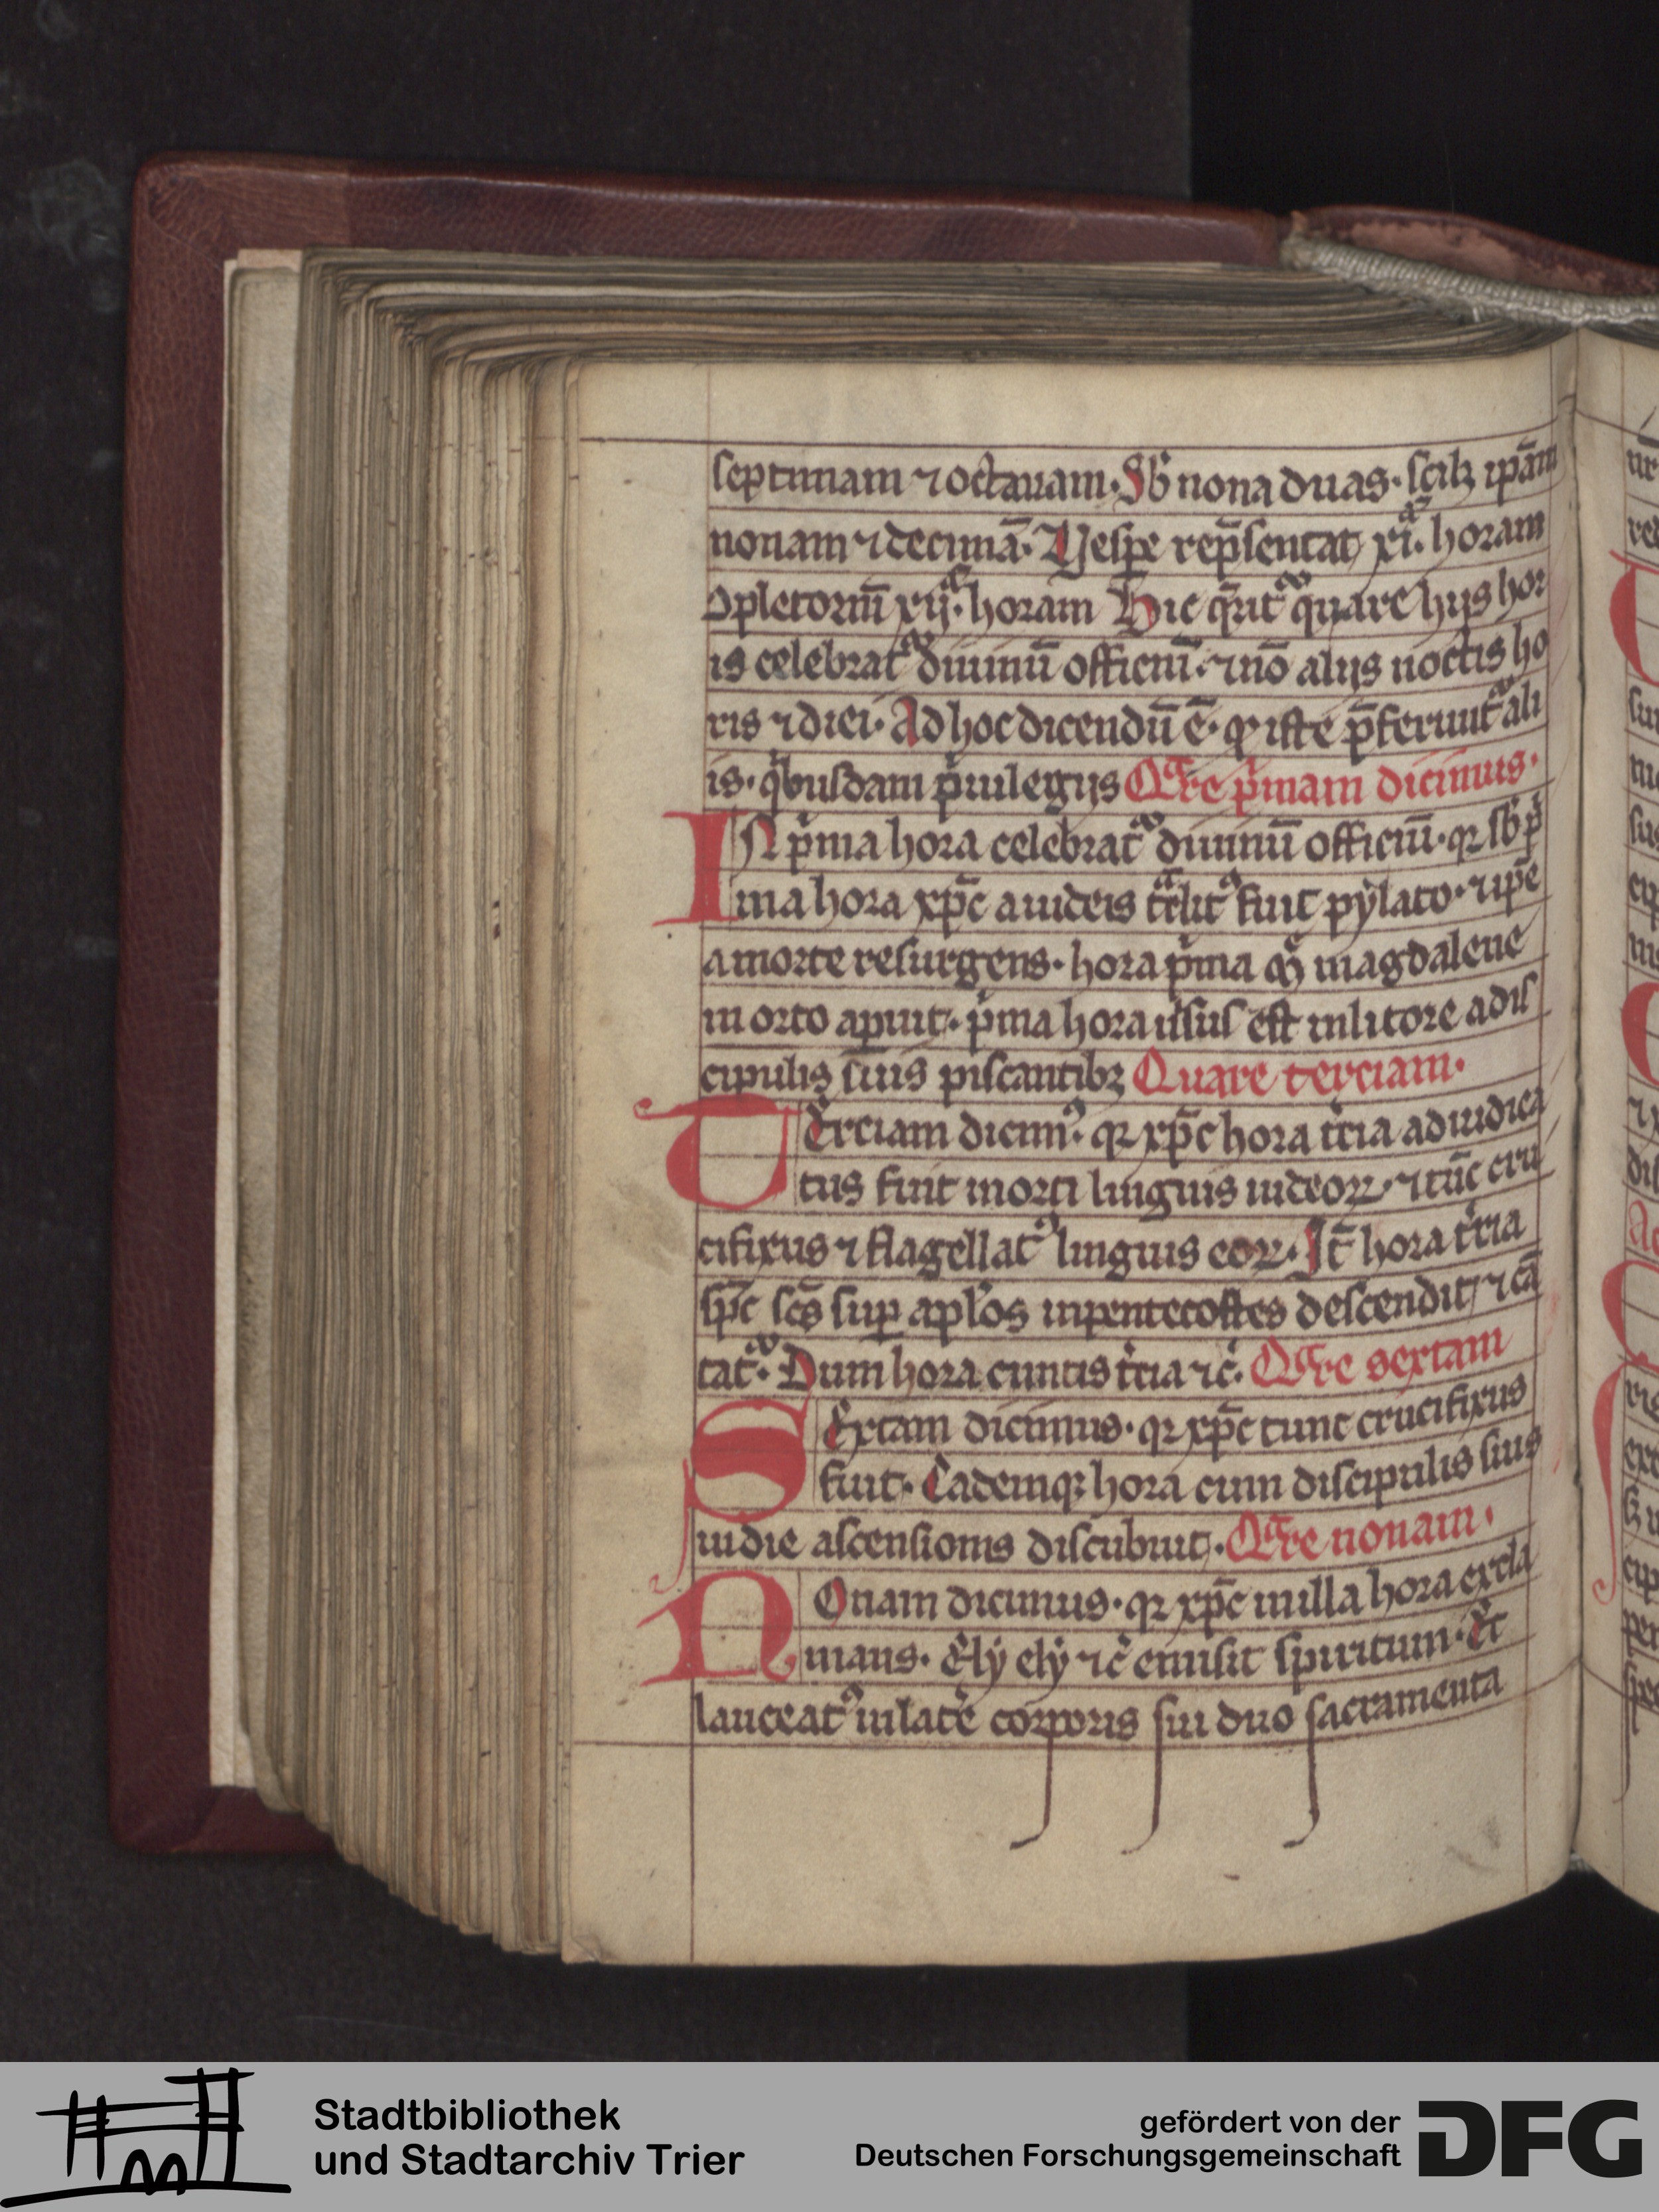 septimam ⁊ octauam. Sb̕ nona duas. scilꝫ ip̄am
nonam ⁊ decimā. Vesꝑe rep̄sentat xi.ᵃ horam
ꝯpletoriū xij.ᵃ horam Hic q̄rit᷑ quare hijs hor
is celebrat᷑ diuinū officiū. ⁊ nō alijs noctis ho
ris ⁊ diei. Ad hoc dicendū ē. ꝙ iste p̄ferunt᷑ ali
is. qͥbusdam pͥuilegijs Qᵃre pͥmam dicimus.
IN pͥma hora celebrat᷑ diuinū officiū. qꝛ sb̕ pͥ
ma hora xp̄c a iudeis tᵃslatꝰ fuit pylato. ⁊ ip̄e
a morte resurgens. hora pͥma M̕ magdalene
in orto apͥuit. pͥma hora uisus est in litore a dis
cipulis suis piscantibꝫ Quare terciam.
TErciam dicimꝰ. qꝛ xp̄c hora t̕cia adiudica
tus fuit morti linguis iudeoꝝ. ⁊ tūc cru
cifixus ⁊ flagellatꝰ linguis eoꝝ. It̄ hora t̕cia
sp̄c scs̄ suꝑ apl̕os in pentecostes descendit, ⁊ cā
tat᷑. Dum hora cunctis t̕cia ⁊c̕. Qᵃre sextam
SExtam dicimus. qꝛ xp̄c tunc crucifixus
fuit. Eademqꝫ hora cum discipulis suis
in die ascensionis discubuit. Qᵃre nonam.
NOnam dicimus. qꝛ xp̄c in illa hora excla
mans. Ely ely ⁊c̕ emisit spiritum. Et
lanceatꝰ in lat̕e corporis sui duo sacramenta
Stadtbibliothek
und Stadtarchiv Trier
gefördert von der
Deutschen Forschungsgemeinschaft
DFG